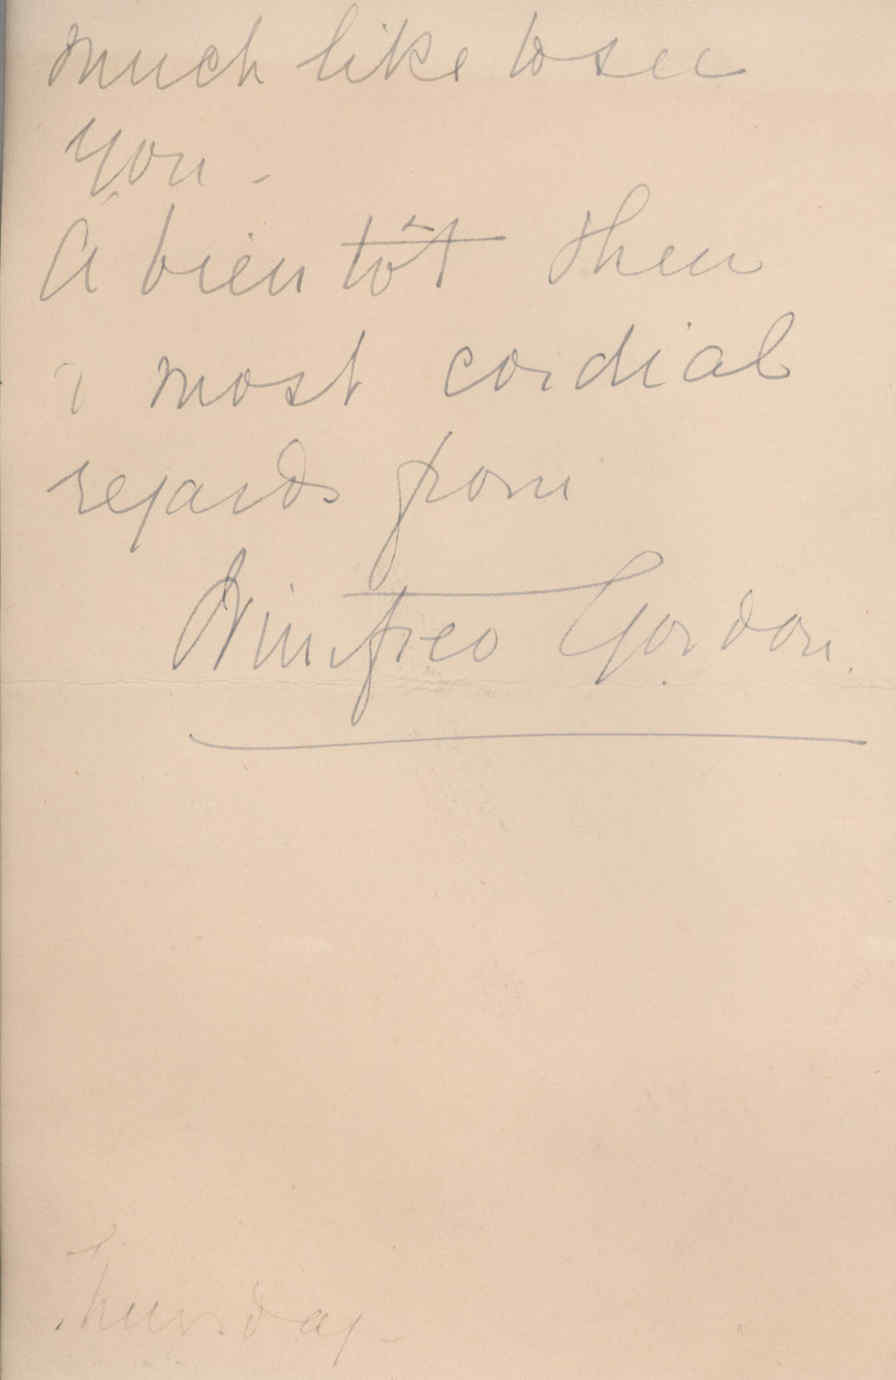 much like to see
you -
À bientôt then
& most cordial
regards from
Winifred Gordon.
Thursday -